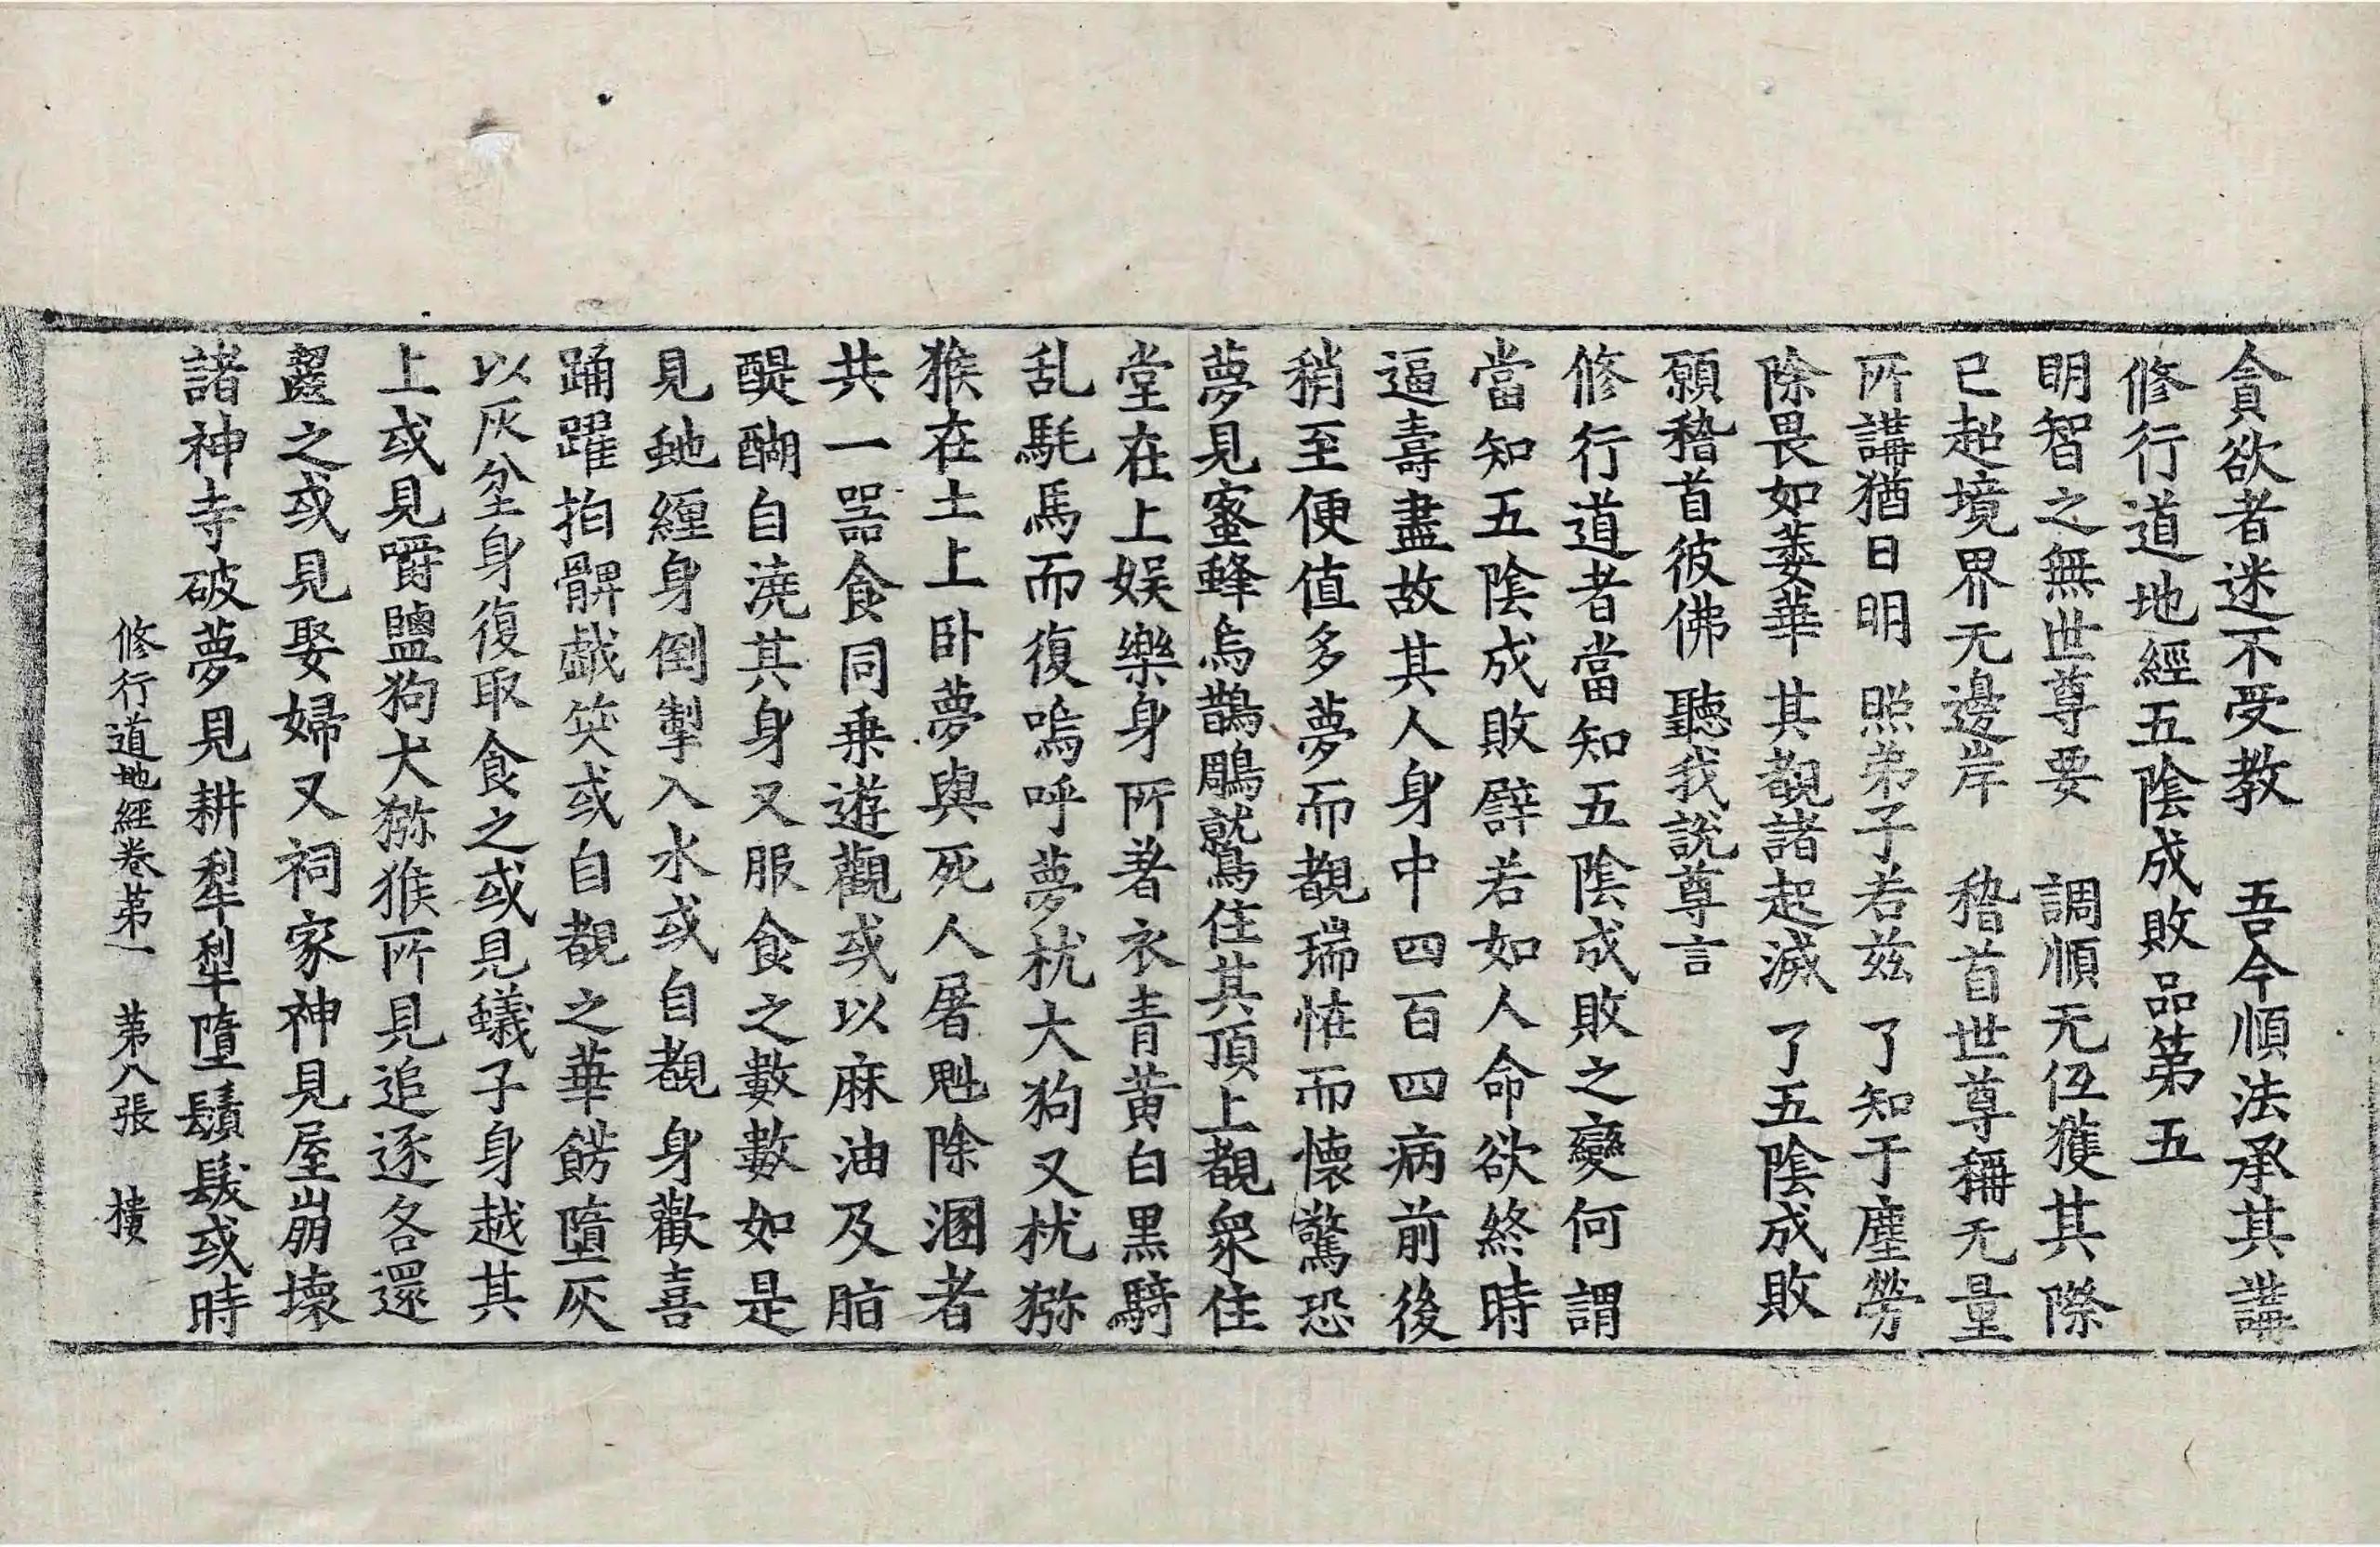 貪欲者迷不受教　吾今順法承其講
修行道地經五陰成敗品第五
明智之無世尊要　調順无伍獲其際
已超境界无邊岸　稽首世尊稱无量
所講猶日明　照弟子若兹　了知于塵勞
除畏如萎華　其覩諸起滅　了五陰成敗
願稽首彼佛　聽我說尊言
修行道者當知五陰成敗之變何謂
當知五陰成敗譬若如人命欲終時
逼壽盡故其人身中四百四病前後
稍至便值多夢而覩瑞恠而懷驚恐
夢見蜜蜂烏鵲鵰鷲住其頂上覩衆住
堂在上娛樂身所著衣青黃白黑騎
乱髦馬而復嗚呼夢枕大狗又枕猕
猴在土上卧夢與死人屠魁除溷者
共一器食同乗遊觀或以麻油及脂
醍醐自澆其身又服食之數數如是
見虵纏身倒掣入水或自覩身歡喜
踊躍拍髀戱笑或自覩之華餝墮灰
以灰坌身復取食之或見蟻子身越其
上或見嚼鹽狗犬猕猴所見追逐各還
齧之或見娶婦又祠家神見屋崩壞
諸神寺破夢見耕犁犁墮鬚髮或時
修行道地經卷苐一　苐八張　樓